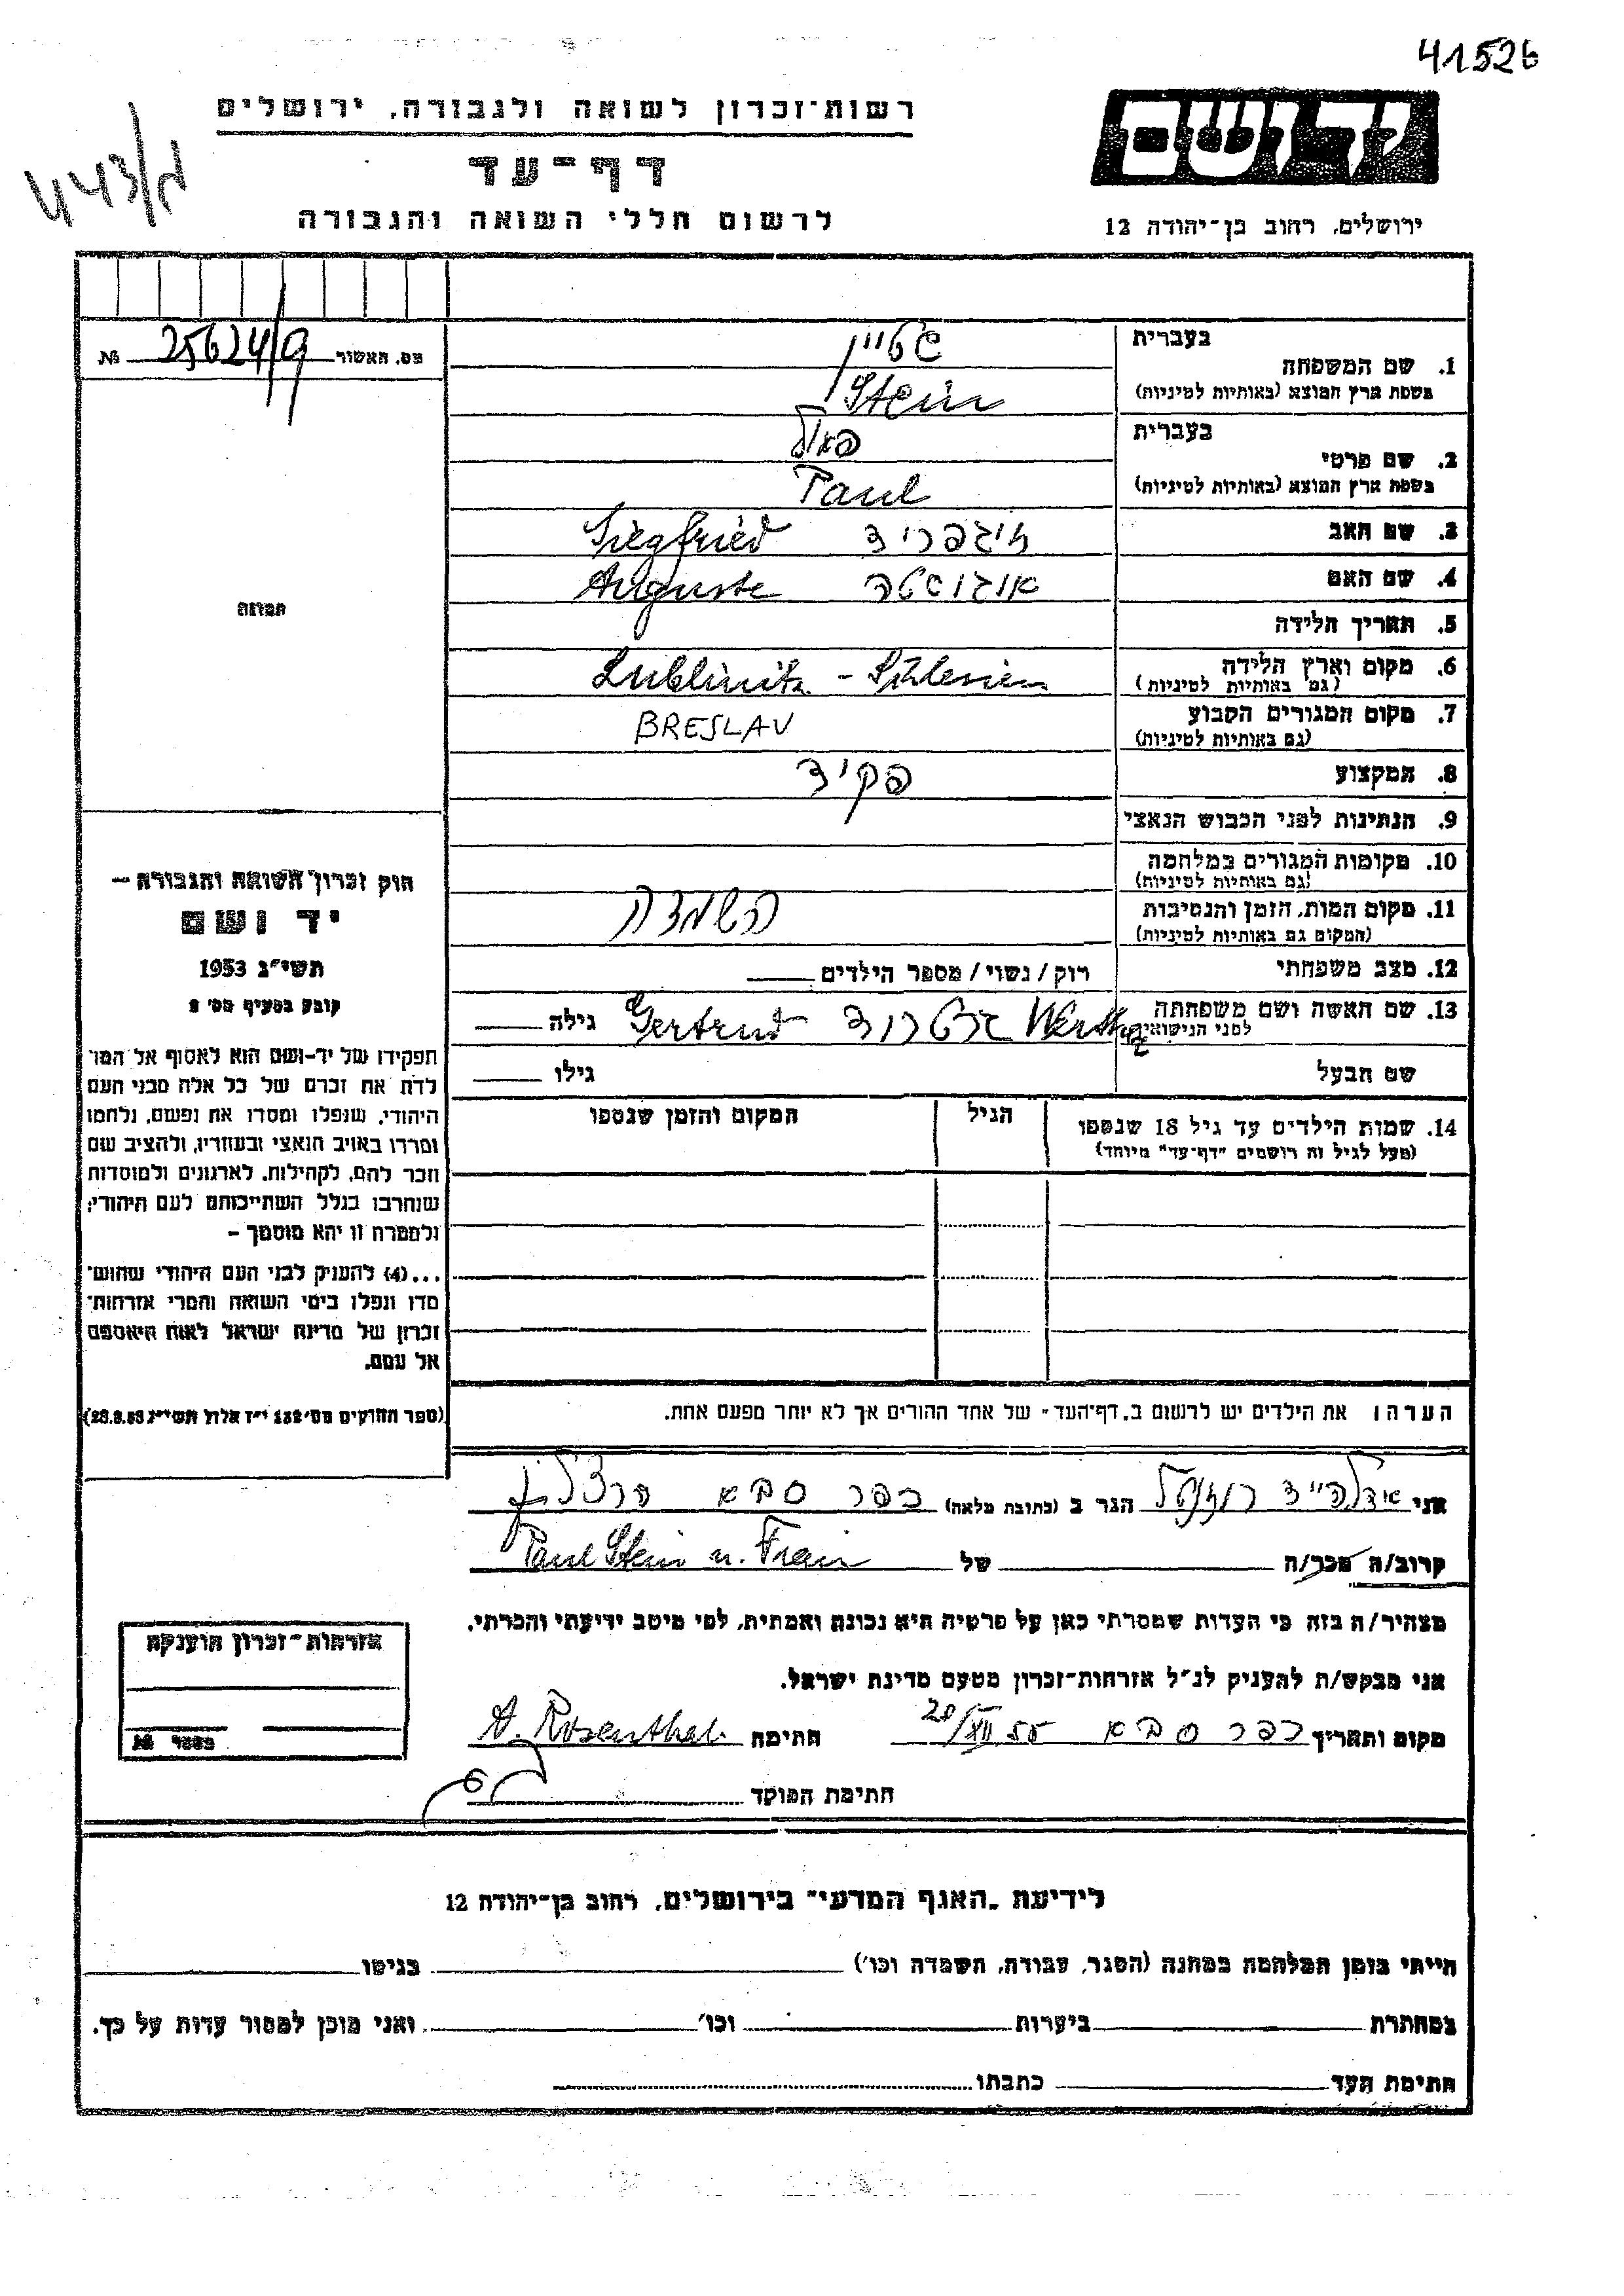 41526
רשות־זכרון לשואה ולגבורה, ירושלים
דף־עד
לרשום חללי השואה והגבורה
יד ושם
ירושלים, רחוב בן־יהודה 12
מס. האשור 25624/9 №
בעברית
1. שם המשפחה שטיין
בשפת ארץ המוצא (באותיות לטיניות) Stein
בעברית
2. שם פרטי פאול
בשפת ארץ המוצא (באותיות לטיניות) Paul
3. שם האב זיגפריד Siegfried
4. שם האם אוגוסטה Auguste
5. תאריך הלידה
6. מקום וארץ הלידה
(גם באותיות לטיניות) Lublinitz - Schlesien
7. מקום המגורים הקבוע
(גם באותיות לטיניות) BRESLAV
8. המקצוע פקיד
9. הנתינות לפני הכבוש הנאצי
10. מקומות המגורים במלחמה
(גם באותיות לטיניות)
11. מקום המות, הזמן והנסיבות
(המקום גם באותיות לטיניות) השמדה
12. מצב משפחתי רוק / נשוי / מספר הילדים
13. שם האשה ושם משפחתה
לפני הנישואין גרטרוד Gertrud גילה
שם הבעל גילו
14. שמות הילדים עד גיל 18 שנספו הגיל המקום והזמן שנספו
(מעל לגיל זה רושמים "דף־עד" מיוחד)
התמונה
חוק זכרון השואה והגבורה –
יד ושם
תשי"ג 1953
קובע בסעיף מס' 2
תפקידו של יד-ושם הוא לאסוף אל המו־
לדת את זכרם של כל אלה מבני העם
היהודי, שנפלו ומסרו את נפשם, נלחמו
ומרדו באויב הנאצי ובעוזריו, ולהציב שם
וזכר להם, לקהילות, לארגונים ולמוסדות
שנחרבו בגלל השתייכותם לעם היהודי;
ולמטרה זו יהא מוסמך –
...(4) להעניק לבני העם היהודי שהוש־
מדו ונפלו בימי השואה והמרי אזרחות־
זכרון של מדינת ישראל לאות היאספם
אל עמם.
(ספר החוקים מס' 132 י"ז אלול תשי"ג 28.8.53)
הערה: את הילדים יש לרשום ב"דף־העד" של אחד ההורים אך לא יותר מפעם אחת.
אני אדלהייד רוזנטל הגר ב (כתובת מלאה) כפר סבא
קרוב/ה מכר/ה של Paul Stein u. Frau
מצהיר/ה בזה כי העדות שמסרתי כאן על פרטיה היא נכונה ואמתית, לפי מיטב ידיעתי והכרתי.
אני מבקש/ת להעניק לנ"ל אזרחות־זכרון מטעם מדינת ישראל.
מקום ותאריך כפר סבא 20/XII 55 חתימה A. Rosenthal
חתימת הפוקד
אזרחות־זכרון הוענקה
מספר №
לידיעת "האגף המדעי" בירושלים, רחוב בן־יהודה 12
הייתי בזמן המלחמה במחנה (הסגר, עבודה, השמדה וכו') בגיטו
במחתרת ביערות וכו' ואני מוכן למסור עדות על כך.
חתימת העד כתבתו